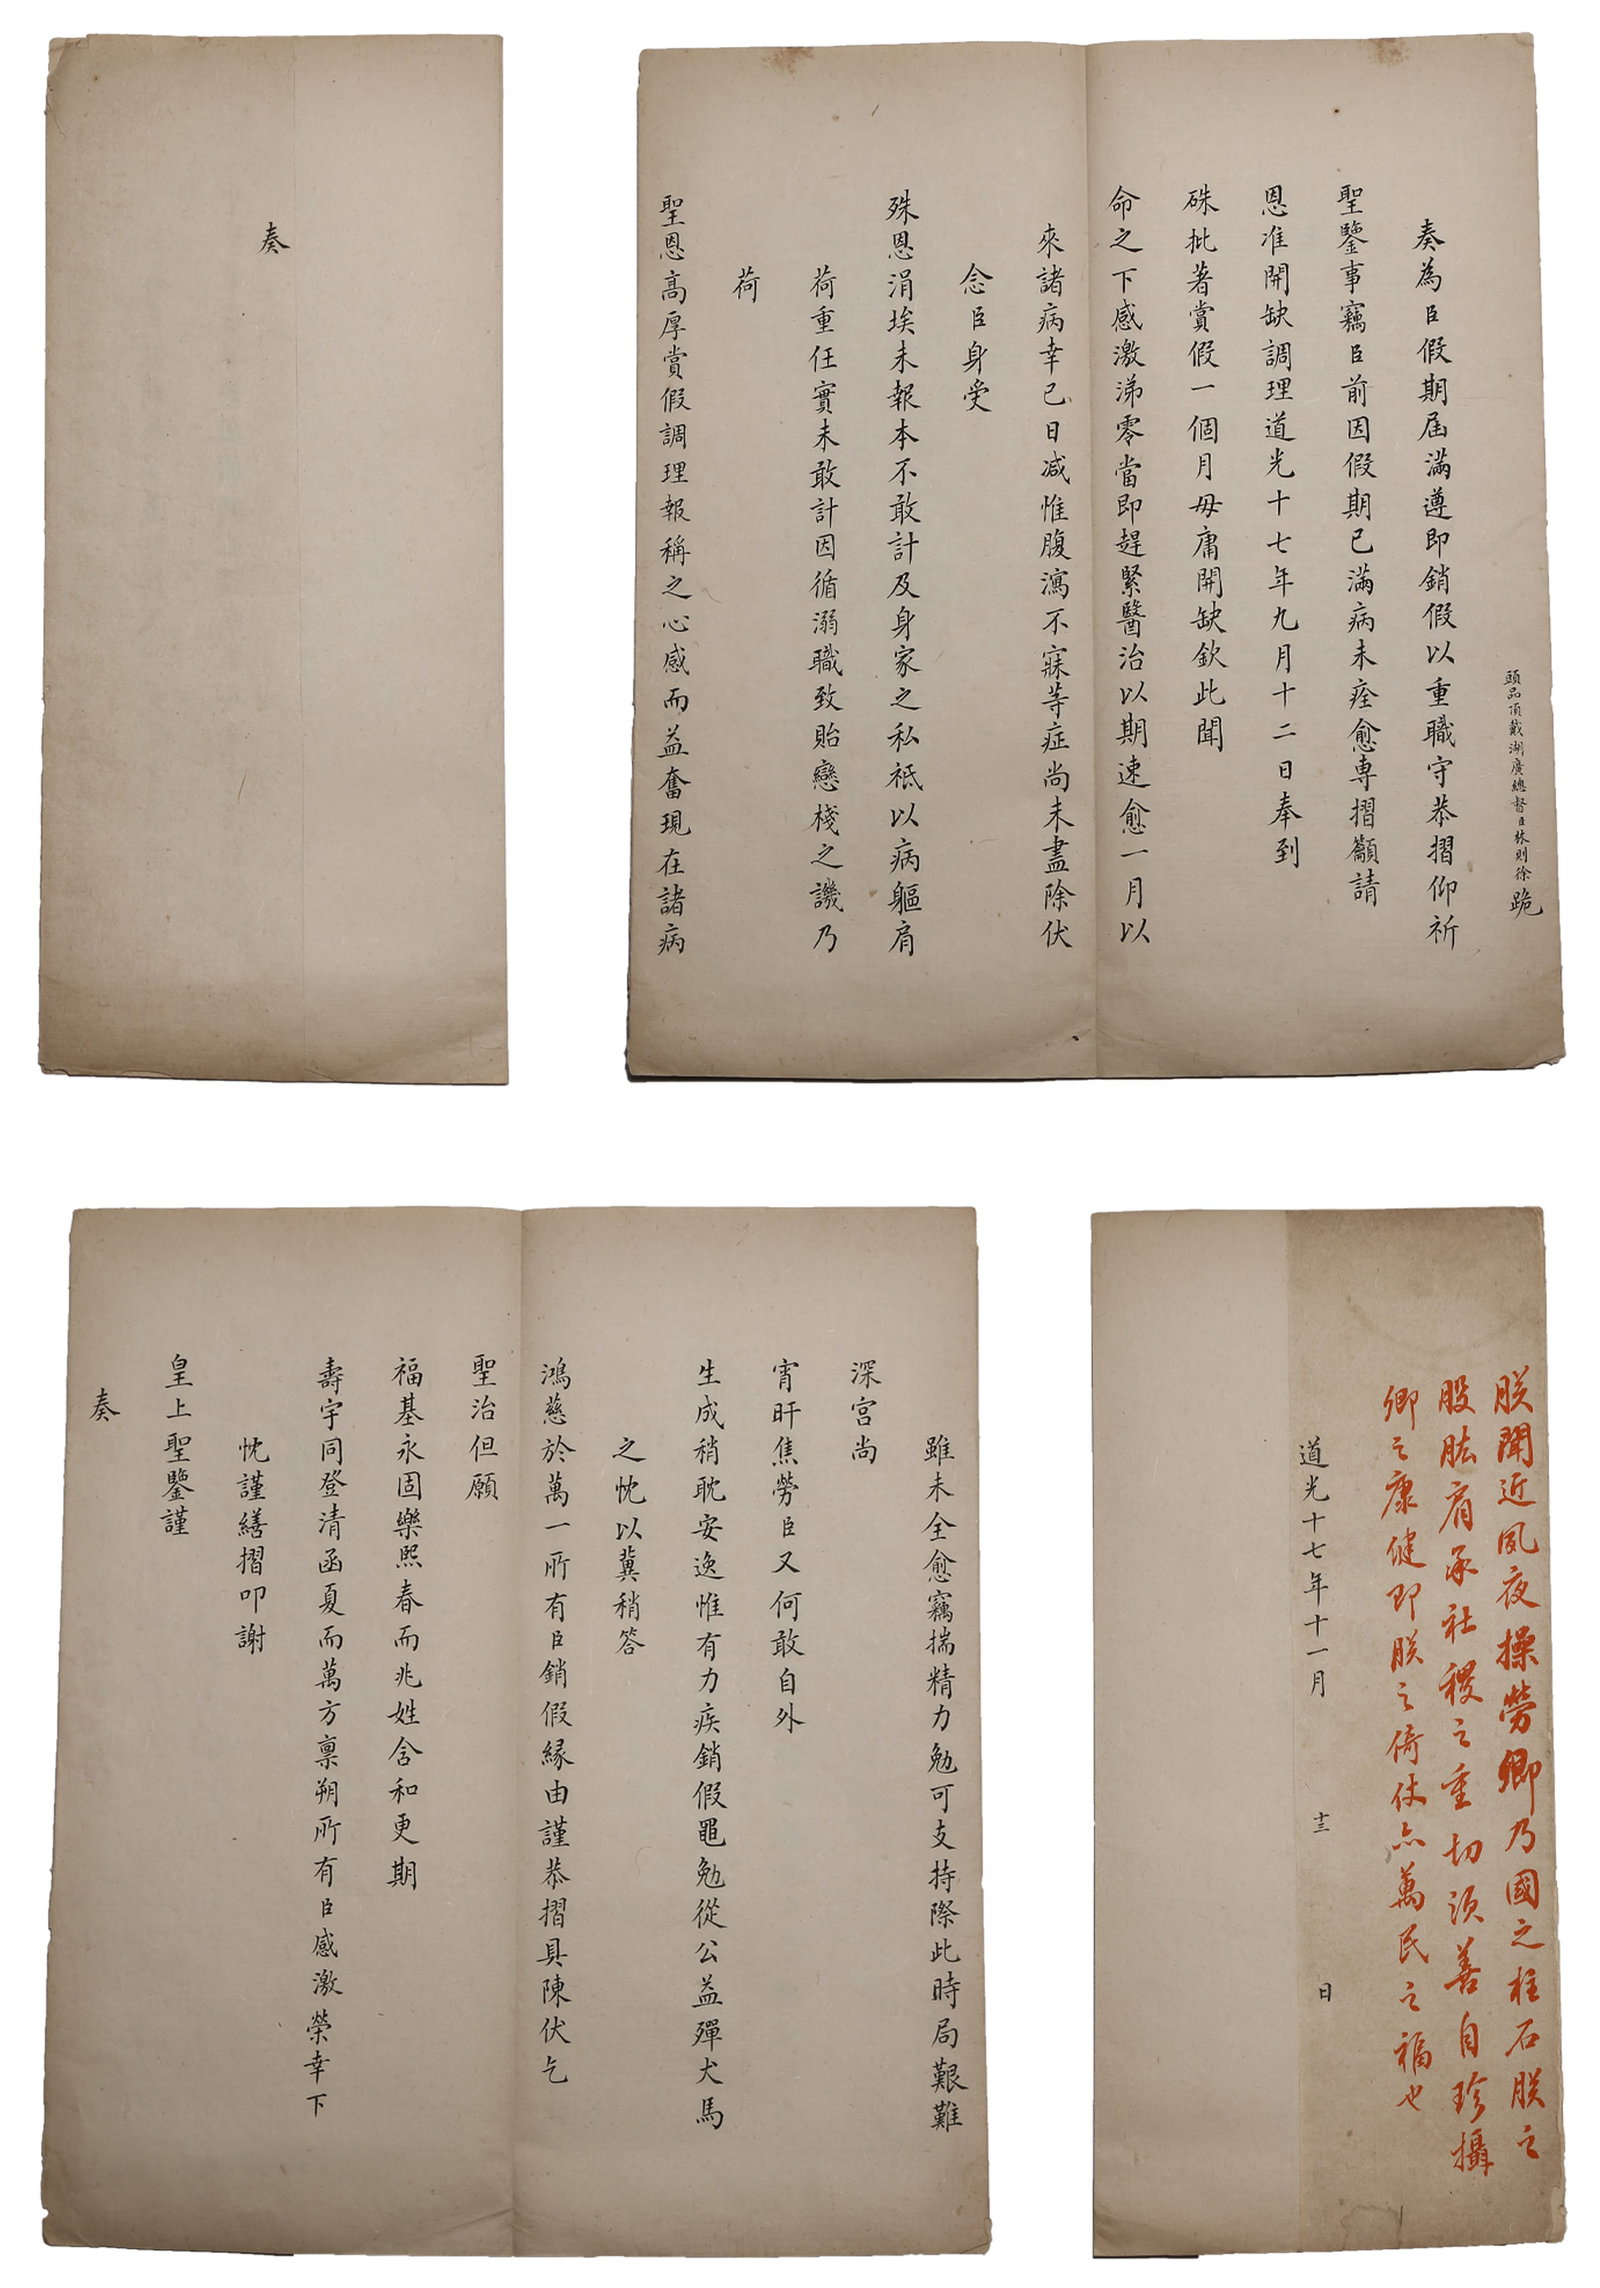 奏
頭品頂戴湖廣總督臣林則徐跪
奏為臣假期屆滿遵即銷假以重職守恭摺仰祈
聖鑒事竊臣前因假期已滿病未痊愈專摺籲請
恩准開缺調理道光十七年九月十二日奉到
硃批著賞假一個月毋庸開缺欽此聞
命之下感激涕零當即趕緊醫治以期速愈一月以
來諸病幸已日減惟腹瀉不寐等症尚未盡除伏
念臣身受
殊恩涓埃未報本不敢計及身家之私祗以病軀肩
荷重任實未敢計因循溺職致貽戀棧之譏乃
荷
聖恩高厚賞假調理報稱之心感而益奮現在諸病
雖未全愈竊揣精力勉可支持際此時局艱難
深宮尚
宵旰焦勞臣又何敢自外
生成稍耽安逸惟有力疾銷假黽勉從公益殫犬馬
之忱以冀稍答
鴻慈於萬一所有臣銷假緣由謹恭摺具陳伏乞
聖治但願
福基永固樂熙春而兆姓含和更期
壽宇同登清函夏而萬方稟朔所有臣感激榮幸下
忱謹繕摺叩謝
皇上聖鑒謹
奏
朕聞近夙夜操勞卿乃國之柱石朕之
股肱肩承社稷之重切須善自珍攝
卿之康健即朕之倚仗亦萬民之福也
道光十七年十一月 十三 日